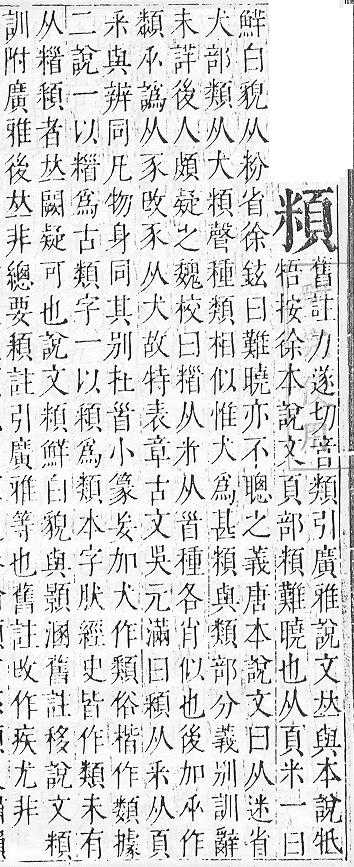 頪
舊註力遂切音類引廣雅說文𠀤與本說牴
牾按徐本說文頁部頪難曉也从頁米一曰
鮮白貌从粉省徐鉉曰難曉亦不聰之義唐本說文曰从迷省
犬部類从犬頪聲種類相似惟犬爲甚頪與類部分義別訓辭
未詳後人頗疑之魏校曰从米从𥃭種各肖似也後加𠂹作
類𠂹譌从豕改豕从犬故特表章古文吳元滿曰頪从釆从頁
釆與辨同凡物身同其別在首小篆妄加犬作類俗楷作類據
二說一以爲古類字一以頪爲類本字肰經史皆作類未有
从頪者𠀤闕疑可也說文頪鮮白貌與顥溷舊註移說文頪
訓附廣雅後𠀤非總要頪註引廣雅等也舊註改作疾尤非